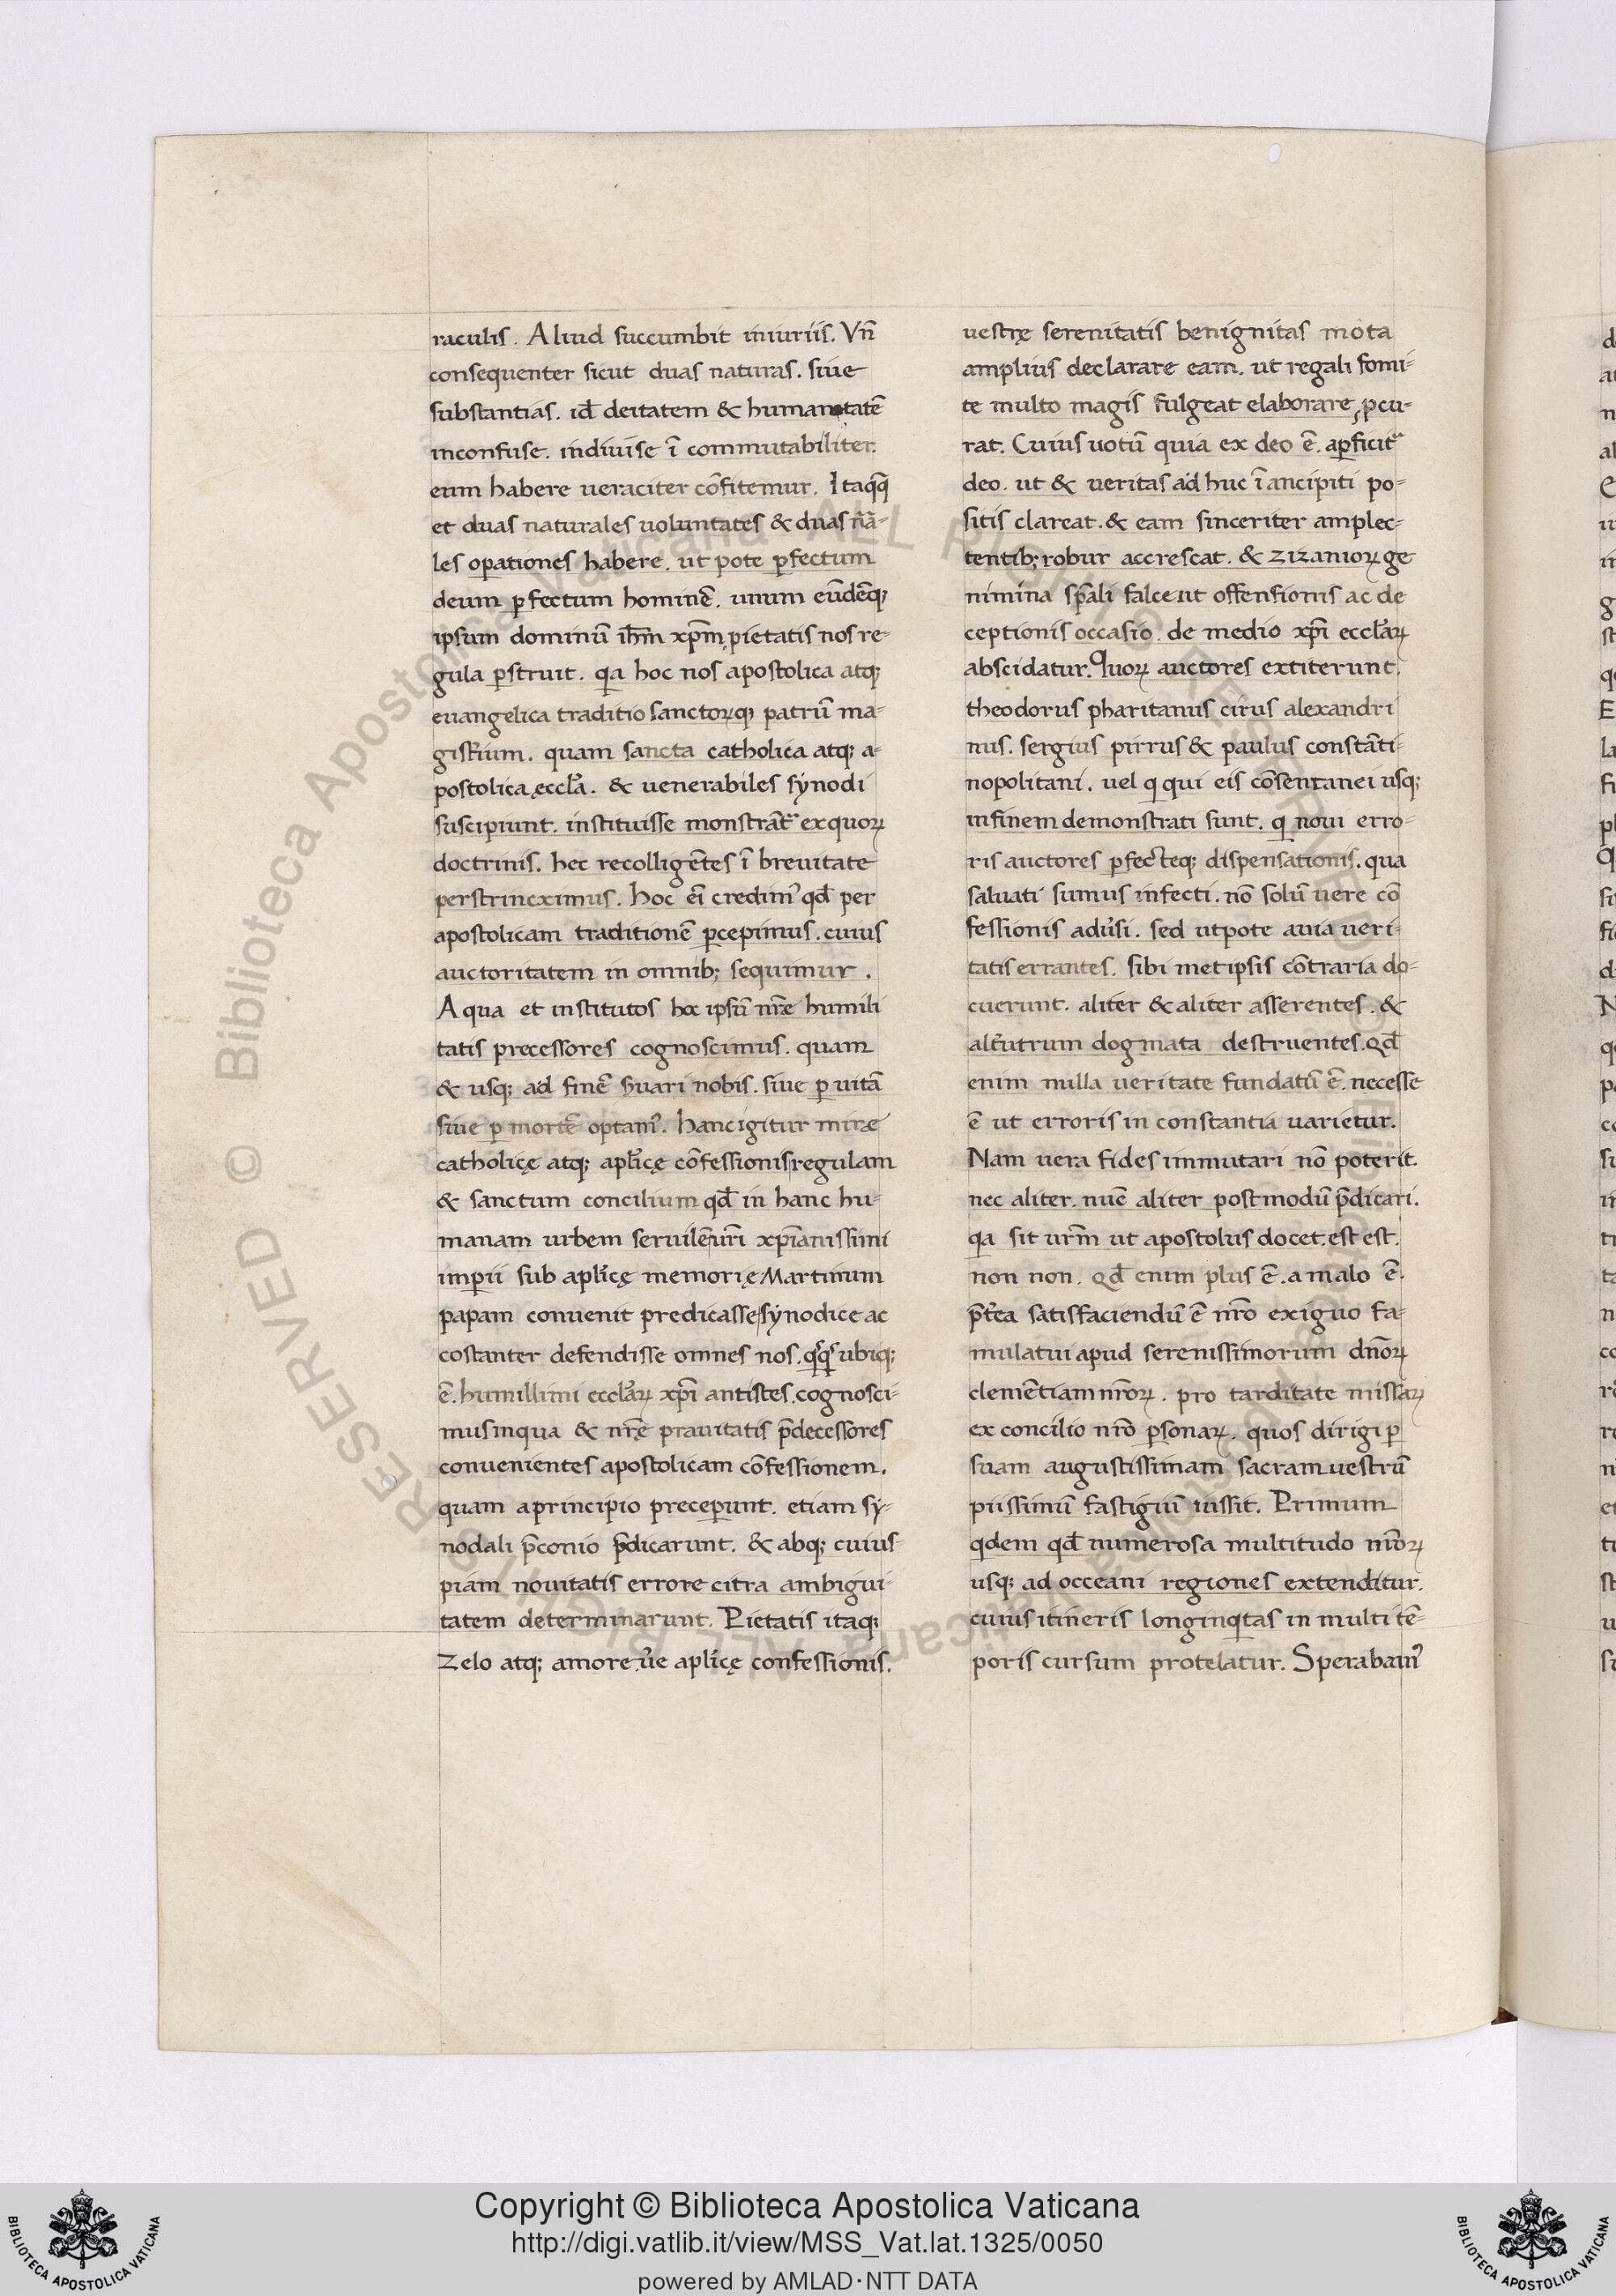 raculis. Aliud succumbit iniuriis. Vn̄
consequenter sicut duas naturas. siue
substantias. id̄ deitatem & humanitatē
inconfuse. indiuise ī commutabiliter.
eum habere ueraciter cōfitemur. Itaq̄q̄
et duas naturales uoluntates & duas nr̄a-
les oꝑationes habere. ut pote ꝑfectum
deum ꝑfectum hominē. unum eūdēq;
ipsum dominū ih̄m xp̄m, pietatis nos re-
gula ꝑstruit. qa hoc nos apostolica atq;
euangelica traditio sanctoꝝq; patrū ma-
gisterium. quam sancta catholica atq; a-
postolica, eccl̄a. & uenerabiles synodi
suscipiunt. instituisse monstrāt᷑ ex quoꝝ
doctrinis. hec recolligētes ī breuitate
perstrincximus. hoc ēi credimꝰ qd̄ per
apostolicam traditionē ꝑcepimus. cuius
auctoritatem in omnib; sequimur.
A qua et institutos hoc ipsū nr̄e humili
tatis precessores cognoscimus. quam
& usq; ad finē s̄uari nobis. siue ꝑ uitā
siue ꝑ mortē optamꝰ. hanc igitur miræ
catholicę atq; apl̄icę cōfessionis regulam
& sanctum concilium qd̄ in hanc hu-
manam urbem seruilē ur̄i xp̄ianissimi
imꝑii sub apl̄icę memorię Martinum
papam conuenit predicasse synodice ac
costanter defendisse omnes nos. qͥqͥ ubiq;
ē. humillimi eccl̄aꝝ xp̄i antistes. cognosci-
mus inqua & nr̄ę prauitatis p̄decessores
conuenientes apostolicam cōfessionem.
quam aprincipio preceꝑunt. etiam sy-
nodali p̄conio p̄dicarunt. & abq; cuius-
piam nouitatis errore citra ambigui-
tatem determinarunt. Pietatis itaq;
zelo atq; amore. ur̄e apl̄icę confessionis.
uestrę serenitatis benignitas mota
amplius declarare eam. ut regali fomi-
te multo magis fulgeat elaborare, ꝓcu-
rat. Cuius uotū quia ex deo ē. aꝑficit᷑
deo. ut & ueritas ad huc ī ancipiti po-
sitis clareat. & eam sinceriter amplec-
tentib; robur accrescat. & zizanioꝝ ge
nimina sp̄ali falce ut offensionis ac de
ceptionis occasio. de medio xp̄i eccl̄aꝝ
abscidatur. Quoꝝ auctores extiterunt.
theodorus pharitanus cirus alexandri
nus. sergius pirrus & paulus constāti-
nopolitani. uel q qui eis cōsentanei usq;
infinem demonstrati sunt. q noui erro-
ris auctores ꝑfecteq; dispensationis. qua
saluati sumus infecti. nō solū uere cō
fessionis adūsi. sed utpote auia ueri-
tatis errantes. sibi metipsis cōtraria do-
cuerunt. aliter & aliter asserentes. &
alt̄utrum dogmata destruentes. Qd̄
enim nulla ueritate fundatū ē. necesse
ē ut erroris in constantia uarietur.
Nam uera fides immutari nō poterit.
nec aliter. nūc aliter postmodū p̄dicari.
qa sit ur̄m ut apostolus docet. est est.
non non. Qd̄ enim plus ē. a malo ē.
p̄t̄ea satisfaciendū ē nr̄o exiguo fa-
mulatui apud serenissimorum dn̄oꝝ
clemētiam nr̄oꝝ. pro tarditate missaꝝ
ex concilio nr̄o ꝑsonaꝝ. quos dirigi ꝑ
suam augustissimam sacram uestrū
piissimū fastigiū iussit. Primum
qdem qd̄ numerosa multitudo nr̄oꝝ
usq; ad occeani regiones extenditur.
cuius itineris longinqtas in multi tē-
poris cursum protelatur. Sperabamꝰ
© Biblioteca Apostolica Vaticana ALL RIGHTS RESERVED
Copyright © Biblioteca Apostolica Vaticana
http://digi.vatlib.it/view/MSS_Vat.lat.1325/0050
powered by AMLAD·NTT DATA
BIBLIOTECA APOSTOLICA VATICANA
BIBLIOTECA APOSTOLICA VATICANA